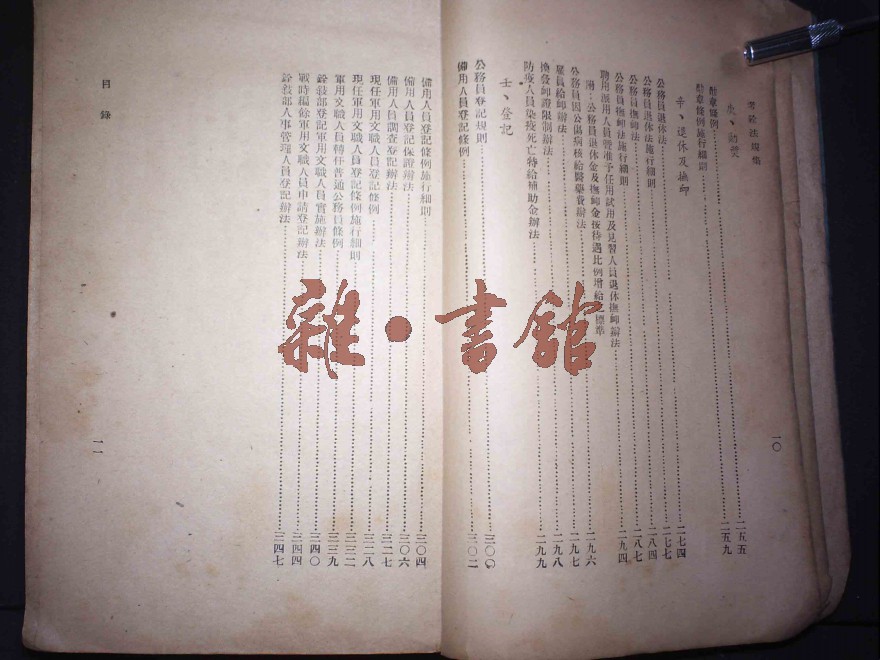 考銓法規集
勛章條例 二五五
勛章條例施行細則 二五九
辛、退休及撫卹
公務員退休法 二七四
公務員退休法施行細則 二七七
公務員撫卹法 二八四
公務員撫卹法施行細則 二八七
聘用派用人員暨准予任用試用及見習人員退休撫卹辦法 二九四
附:公務員退休金及撫卹金按待遇比例增給標準 二九六
公務員因公傷病核給醫藥費辦法 二九七
雇員給卹辦法 二九八
換發卹證限制辦法 二九九
防疫人員染疫死亡特給補助金辦法
壬、登記
公務員登記規則 三〇〇
備用人員登記條例 三〇二
一〇
備用人員登記條例施行細則 三〇四
備用人員登記保證辦法 三〇六
備用人員調查登記辦法 三二七
現任軍用文職人員登記條例 三二八
現任軍用文職人員登記條例施行細則 三三二
軍用文職人員轉任普通公務員條例 三三九
銓敍部登記軍用文職人員實施辦法 三四〇
戰時編餘軍用文職人員申請登記辦法 三四四
銓敍部人事管理人員登記辦法 三四七
目錄
一一
雜·書館